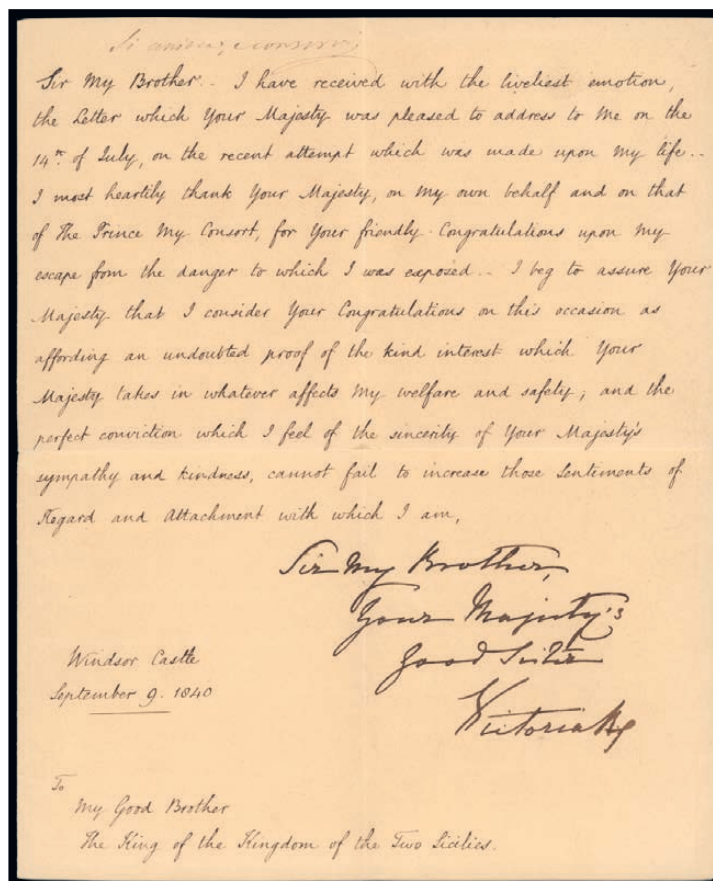 Si unisca, e conservi
Sir My Brother.. I have received with the liveliest emotion,
the Letter which Your Majesty was pleased to address to Me on the
14th of July, on the recent attempt which was made upon My life..
I most heartily thank Your Majesty, on My own behalf and on that
of The Prince My Consort, for Your friendly Congratulations upon My
escape from the danger to which I was exposed.. I beg to assure Your
Majesty that I consider Your Congratulations on this occasion as
affording an undoubted proof of the kind interest which Your
Majesty takes in whatever affects My welfare and safety; and the
perfect conviction which I feel of the sincerity of Your Majesty's
sympathy and kindness, cannot fail to increase those Sentiments of
Regard and Attachment with which I am,
Sir My Brother,
Your Majesty's
Good Sister
Victoria R
Windsor Castle
September 9. 1840
To
My Good Brother
The King of the Kingdom of the Two Sicilies.